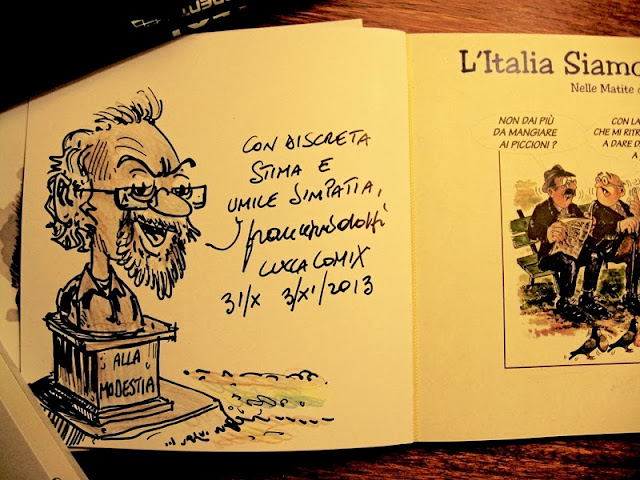 CON DISCRETA
STIMA E
UMILE SIMPATIA,
LUCCA COMIX
31/X 3/XI/2013
ALLA
MODESTIA
L'Italia Siamo
Nelle Matite
NON DAI PIÙ
DA MANGIARE
AI PICCIONI?
CON LA
CHE MI RITR
A DARE D
A